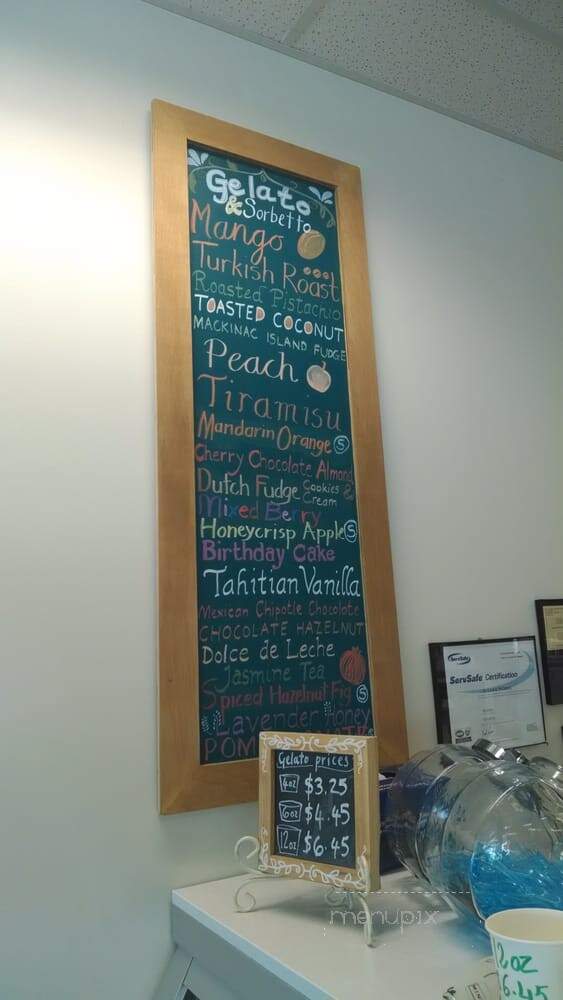 Gelato
& Sorbetto
Mango
Turkish Roast
Roasted Pistachio
TOASTED COCONUT
MACKINAC ISLAND FUDGE
Peach
Tiramisu
Mandarin Orange S
Cherry Chocolate Almond
Dutch Fudge Cookies &
Cream
Mixed Berry
Honeycrisp Apple S
Birthday Cake
Tahitian Vanilla
Mexican Chipotle Chocolate
CHOCOLATE HAZELNUT
Dolce de Leche
Jasmine Tea
Spiced Hazelnut Fig S
Lavender Honey
Gelato prices
4oz $3.25
6oz $4.45
12oz $6.45
ServSafe
ServSafe Certification
menupix
12oz
6.45